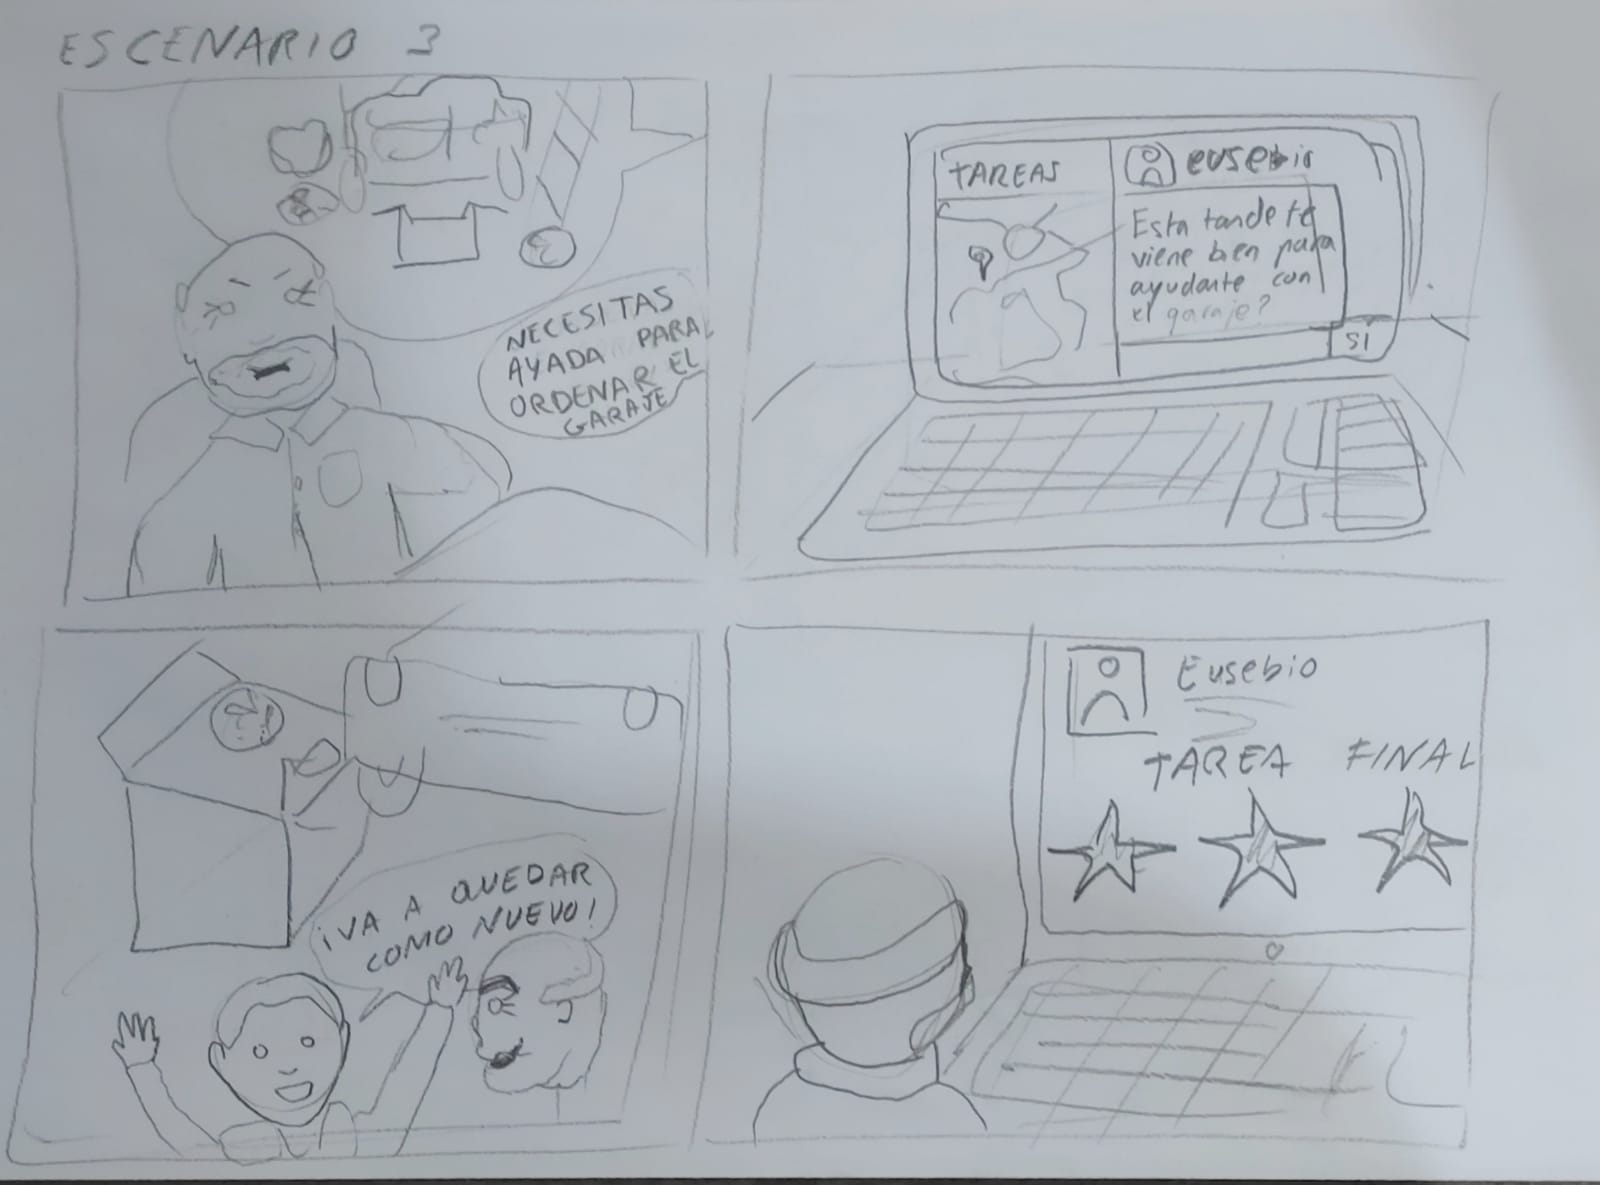 ESCENARIO 3
NECESITAS
AYADA PARA
ORDENAR EL
GARAJE
TAREAS
eusebio
Esta tande te
viene bien para
ayudarte con
el garaje?
SI
¡VA A QUEDAR
COMO NUEVO!
Eusebio
TAREA FINAL